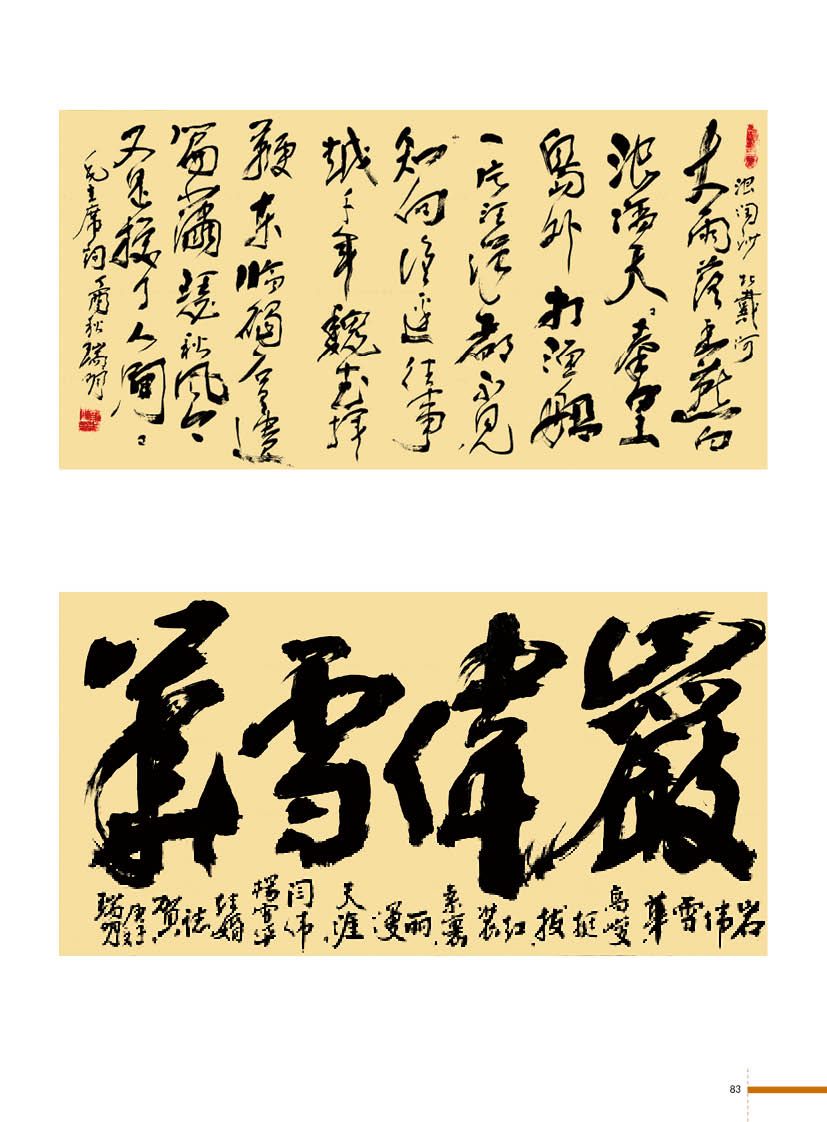 浪淘沙 北戴河
大雨落幽燕白
浪滔天秦皇
島外打渔船
一片汪洋都不见
知向谁边往事
越千年魏武挥
鞭东临碣石有遗
篇萧瑟秋风今
又是换了人间
毛主席词 丁酉秋 瑞明
巖偉雪華
岩伟雪華 高峻挺拔 红装素裹 丽漫天涯 闫伟 杨雪华 结婚志贺 庚子 瑞明
83